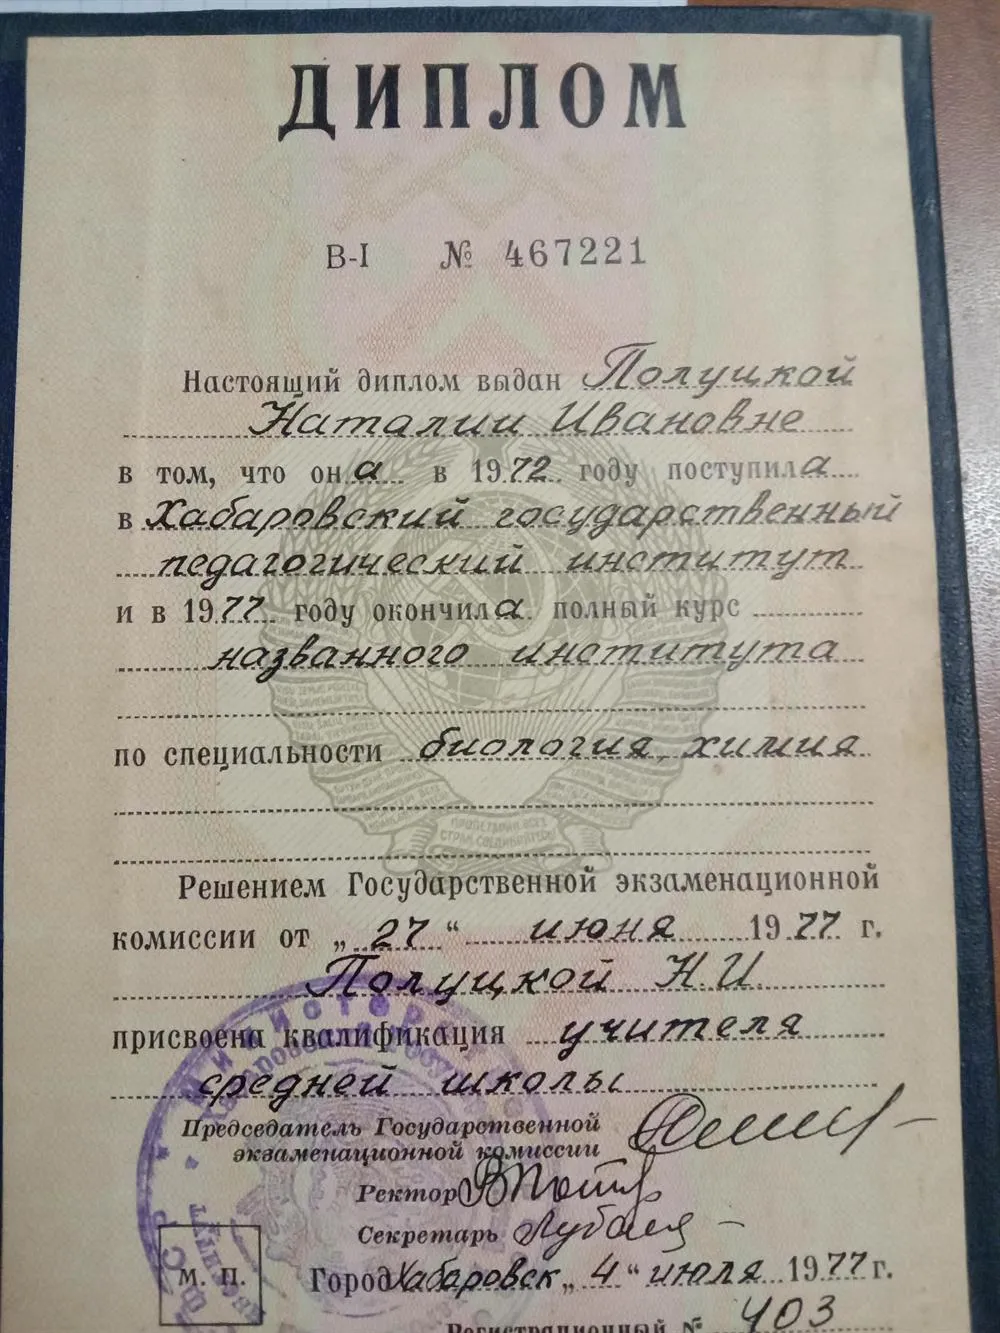 ДИПЛОМ
В-I № 467221
Настоящий диплом выдан Полуцкой
Наталии Ивановне
в том, что она в 1972 году поступила
в Хабаровский государственный
педагогический институт
и в 1977 году окончила полный курс
названного института
по специальности биология, химия
ПРОЛЕТАРИИ ВСЕХ
СТРАН, СОЕДИНЯЙТЕСЬ!
Решением Государственной экзаменационной
комиссии от „27“ июня 1977 г.
Полуцкой Н.И.
присвоена квалификация учителя
средней школы
Председатель Государственной
экзаменационной комиссии
Ректор
Секретарь
М. П.
Город Хабаровск „4“ июля 1977 г.
Регистрационный № 403